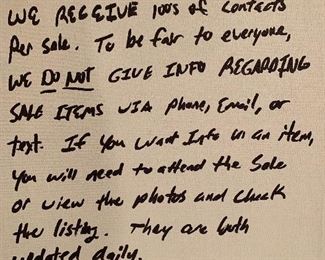 WE RECEIVE 100s of Contacts
Per Sale. To be fair to everyone,
WE DO NOT GIVE INFO REGARDING
SALE ITEMS VIA Phone, Email, or
text. If You Want Info on an item,
You will need to attend the Sale
or view the photos and check
the listing. They are both
updated daily.